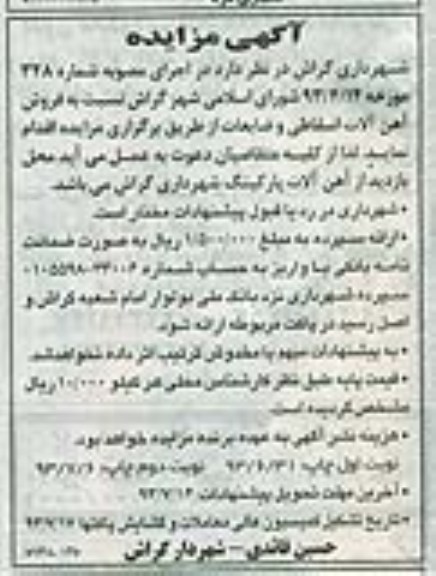 آگهی مزایده
شهرداری گراش در نظر دارد در اجرای مصوبه شماره ۳۲۸
مورخه ۹۳/۴/۲۴ شورای اسلامی شهر گراش نسبت به فروش
آهن آلات اسقاطی و ضایعات از طریق برگزاری مزایده اقدام
نماید. لذا از کلیه متقاضیان دعوت به عمل می آید محل
بازدید از آهن آلات پارکینگ شهرداری گراش می باشد.
• شهرداری در رد یا قبول پیشنهادات مختار است.
• ارائه سپرده به مبلغ ۱/۵۰۰/۰۰۰ ریال به صورت ضمانت
نامه بانکی یا واریز به حساب شماره
سپرده شهرداری نزد بانک ملی بولوار امام شعبه گراش و
اصل رسید در پاکت مربوطه ارائه شود.
• به پیشنهادات مبهم یا مخدوش ترتیب اثر داده نخواهد شد.
• قیمت پایه طبق نظر کارشناس محلی هر کیلو ۱۰/۰۰۰ ریال
مشخص گردیده است.
• هزینه نشر آگهی به عهده برنده مزایده خواهد بود.
نوبت اول چاپ: ۹۳/۶/۳۱ نوبت دوم چاپ: ۹۳/۷/۶
• آخرین مهلت تحویل پیشنهادات: ۹۳/۷/۱۶
• تاریخ تشکیل کمیسیون عالی معاملات و گشایش پاکتها ۹۳/۷/۱۷
حسین قائدی – شهردار گراش